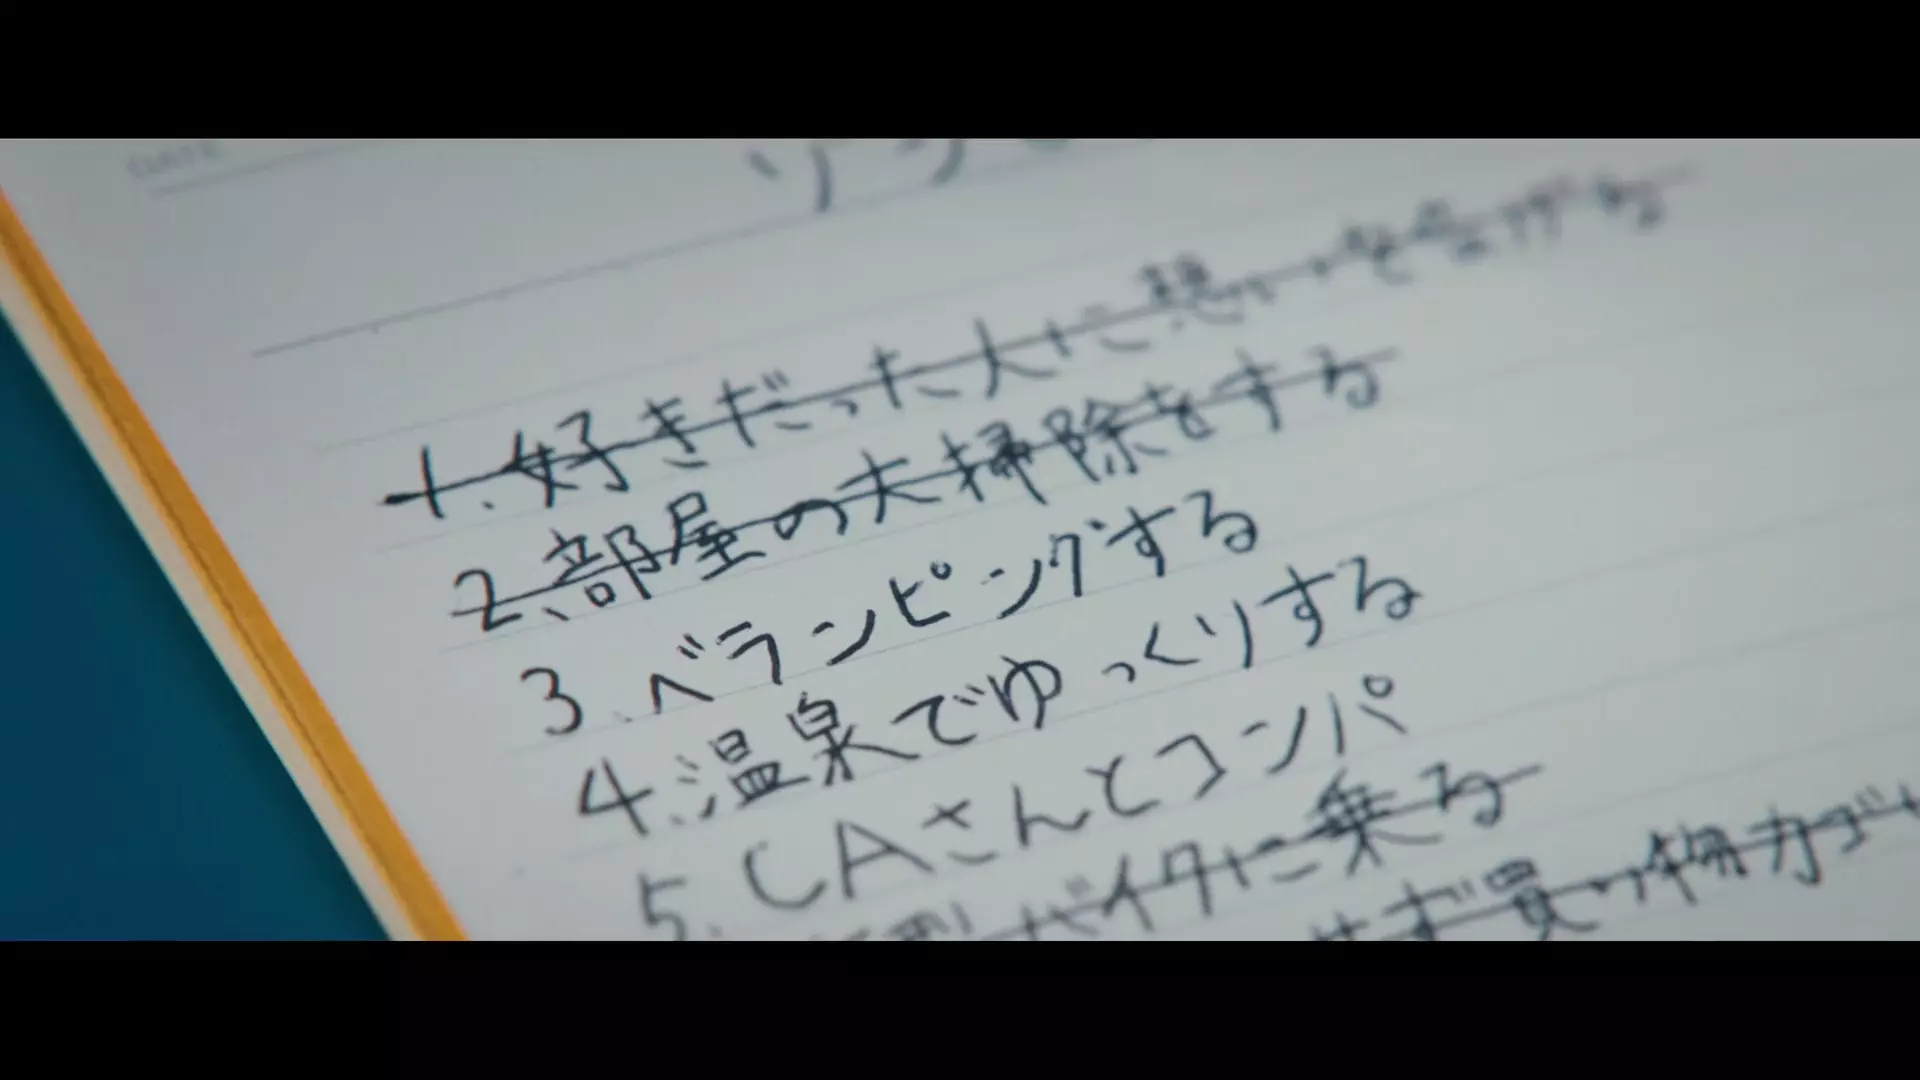 DATE
ゾン
1.好きだった人に想いを告げる
2.部屋の大掃除をする
3.ベランピングする
4.温泉でゆっくりする
5.CAさんとコンパ
バイクに乗る
買い物カゴ